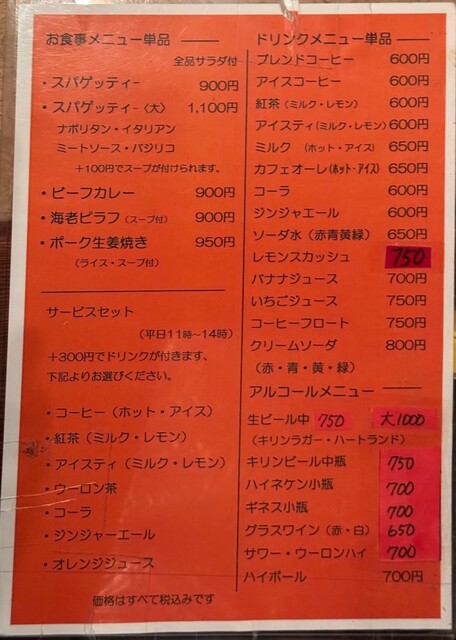 お食事メニュー単品
全品サラダ付
・スパゲッティー 900円
・スパゲッティー〈大〉 1,100円
ナポリタン・イタリアン
ミートソース・バジリコ
+100円でスープが付けられます。
・ビーフカレー 900円
・海老ピラフ(スープ付) 900円
・ポーク生姜焼き 950円
(ライス・スープ付)
サービスセット
(平日11時~14時)
+300円でドリンクが付きます、
下記よりお選びください。
・コーヒー(ホット・アイス)
・紅茶(ミルク・レモン)
・アイスティ(ミルク・レモン)
・ウーロン茶
・コーラ
・ジンジャーエール
・オレンジジュース
価格はすべて税込みです
ドリンクメニュー単品
ブレンドコーヒー 600円
アイスコーヒー 600円
紅茶(ミルク・レモン) 600円
アイスティ(ミルク・レモン) 600円
ミルク (ホット・アイス) 650円
カフェオーレ(ホット・アイス) 650円
コーラ 600円
ジンジャエール 600円
ソーダ水(赤青黄緑) 650円
レモンスカッシュ 750
バナナジュース 700円
いちごジュース 750円
コーヒーフロート 750円
クリームソーダ 800円
(赤・青・黄・緑)
アルコールメニュー
生ビール中 750 大1000
(キリンラガー・ハートランド)
キリンビール中瓶 750
ハイネケン小瓶 700
ギネス小瓶 700
グラスワイン(赤・白) 650
サワー・ウーロンハイ 700
ハイボール 700円